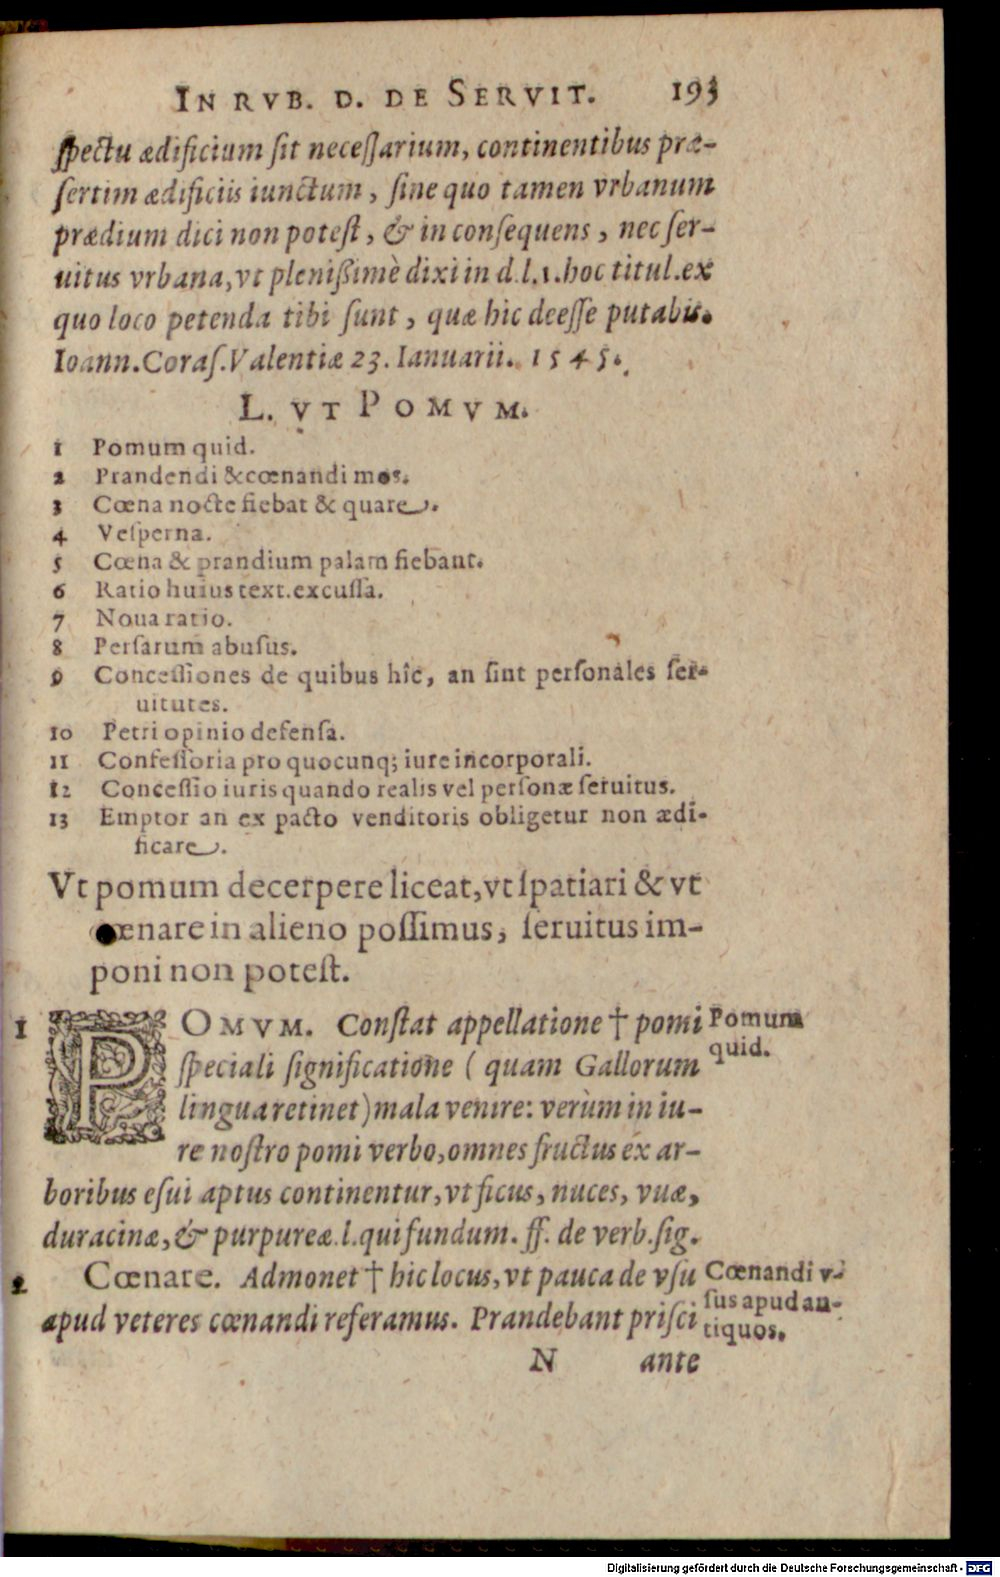 IN RVB. D. DE SERVIT. 193
ſpectu ædificium ſit neceſſarium, continentibus præ-
ſertim ædificiis iunctum, ſine quo tamen vrbanum
prædium dici non poteſt, & in conſequens, nec ſer-
uitus vrbana, vt pleniſſimè dixi in d.l.1. hoc titul. ex
quo loco petenda tibi ſunt, quæ hic deeſſe putabis.
Ioann. Coraſ. Valentiæ 23. Ianuarii. 1545.
L. VT POMVM.
1 Pomum quid.
2 Prandendi & cœnandi mos.
3 Cœna nocte fiebat & quare.
4 Veſperna.
5 Cœna & prandium palam fiebant.
6 Ratio huius text. excuſſa.
7 Noua ratio.
8 Perſarum abuſus.
9 Conceſſiones de quibus hîc, an ſint perſonales ſer-
uitutes.
10 Petri opinio defenſa.
11 Confeſſoria pro quocunq; iure incorporali.
12 Conceſſio iuris quando realis vel perſonæ ſeruitus.
13 Emptor an ex pacto venditoris obligetur non ædi-
ficare.
Vt pomum decerpere liceat, vt ſpatiari & vt
cœnare in alieno poſſimus, ſeruitus im-
poni non poteſt.
1 POMVM. Conſtat appellatione † pomi
Pomum
ſpeciali ſignificatione ( quam Gallorum
quid.
lingua retinet) mala venire: verùm in iu-
re noſtro pomi verbo, omnes fructus ex ar-
boribus eſui aptus continentur, vt ficus, nuces, vuæ,
duracinæ, & purpureæ. l. qui fundum. ff. de verb. ſig.
2 Cœnare. Admonet † hic locus, vt pauca de vſu
Cœnandi v-
apud veteres cœnandi referamus. Prandebant priſci
ſus apud an-
tiquos.
N ante
Digitalisierung gefördert durch die Deutsche Forschungsgemeinschaft - DFG